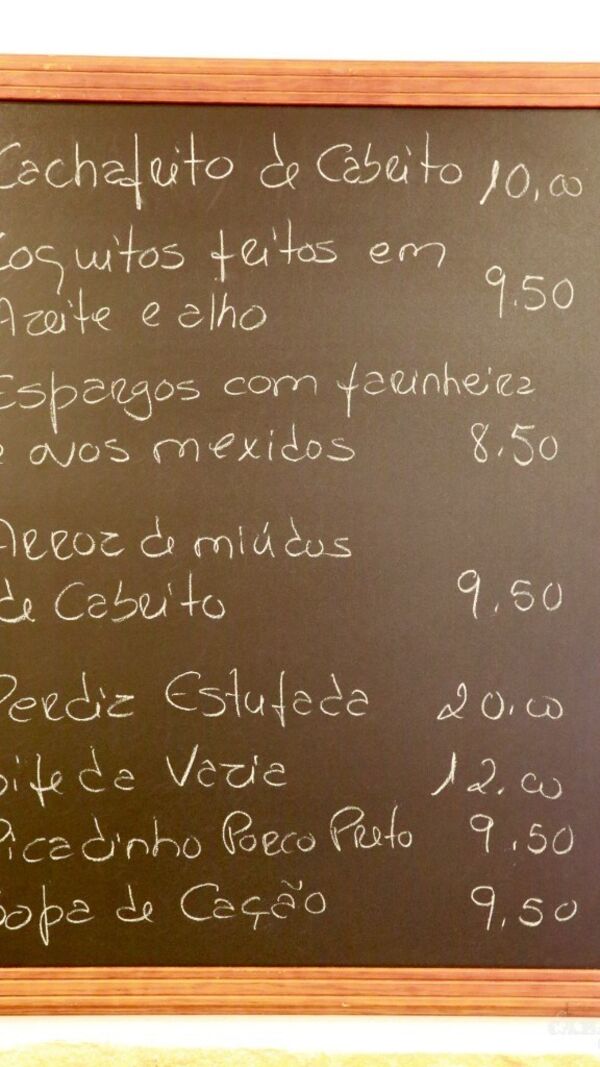 Cachafeito de Cabrito 10,00
Coguitos feitos em
Azeite e alho 9.50
Espargos com farinheira
e ovos mexidos 8.50
Arroz de miúdos
de Cabrito 9.50
Perdiz Estufada 20.00
Bife da Vazia 12.00
Picadinho Porco Preto 9.50
Sopa de Cação 9,50